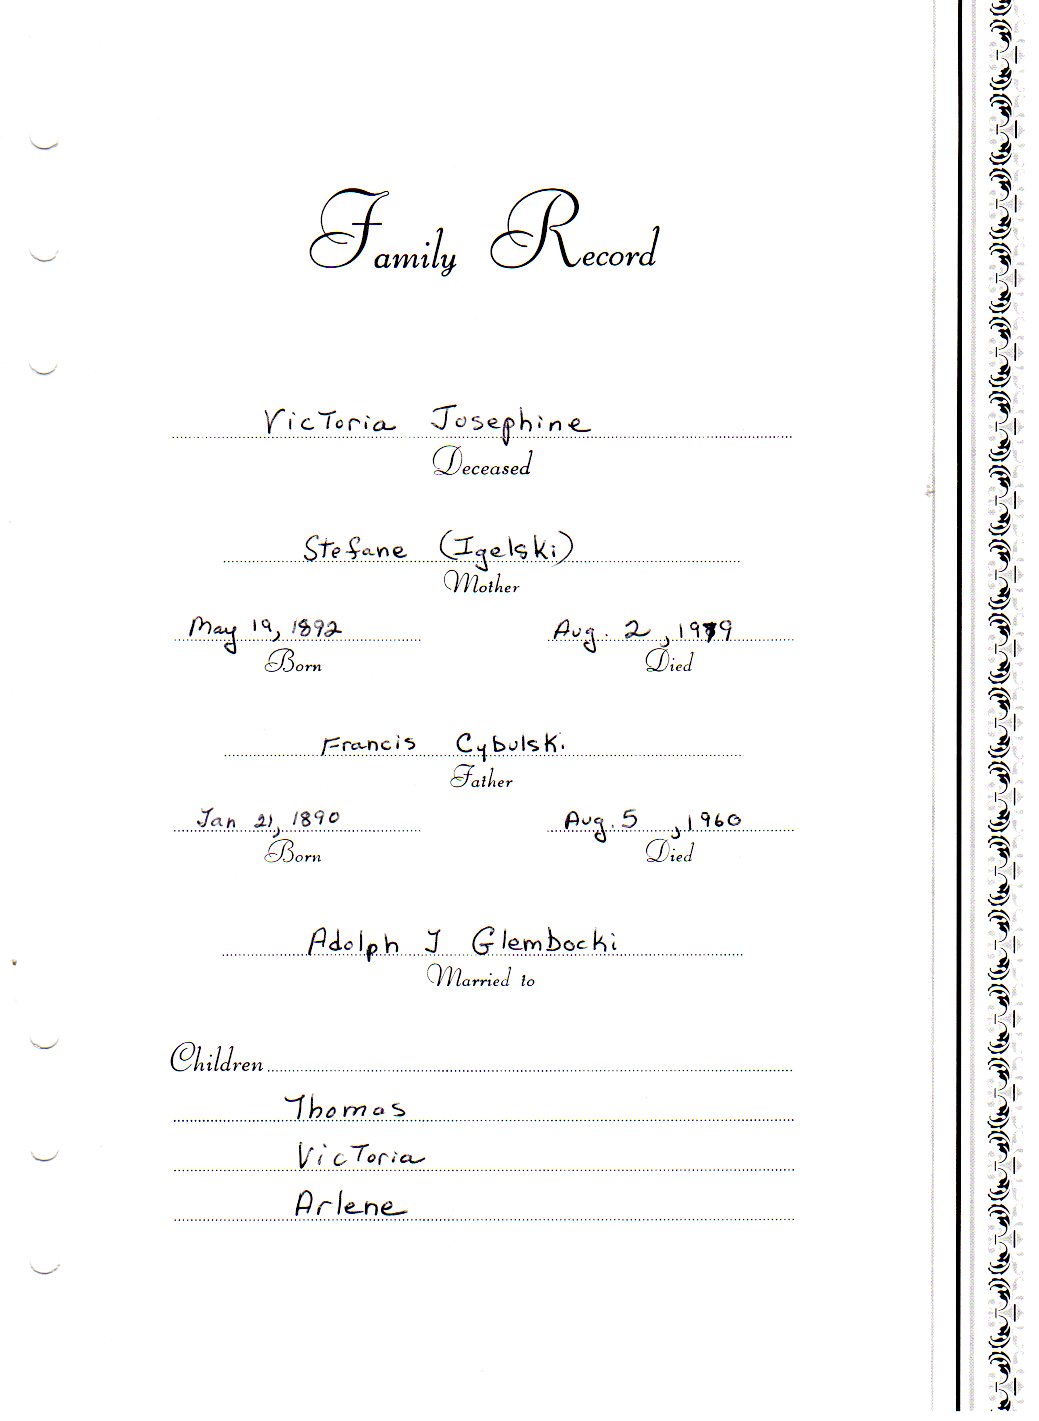 Family Record
Victoria Josephine
Deceased
Stefane (Igelski)
Mother
May 19, 1892 Aug. 2, 1979
Born Died
Francis Cybulski
Father
Jan 21, 1890 Aug. 5, 1960
Born Died
Adolph J Glembocki
Married to
Children
Thomas
Victoria
Arlene